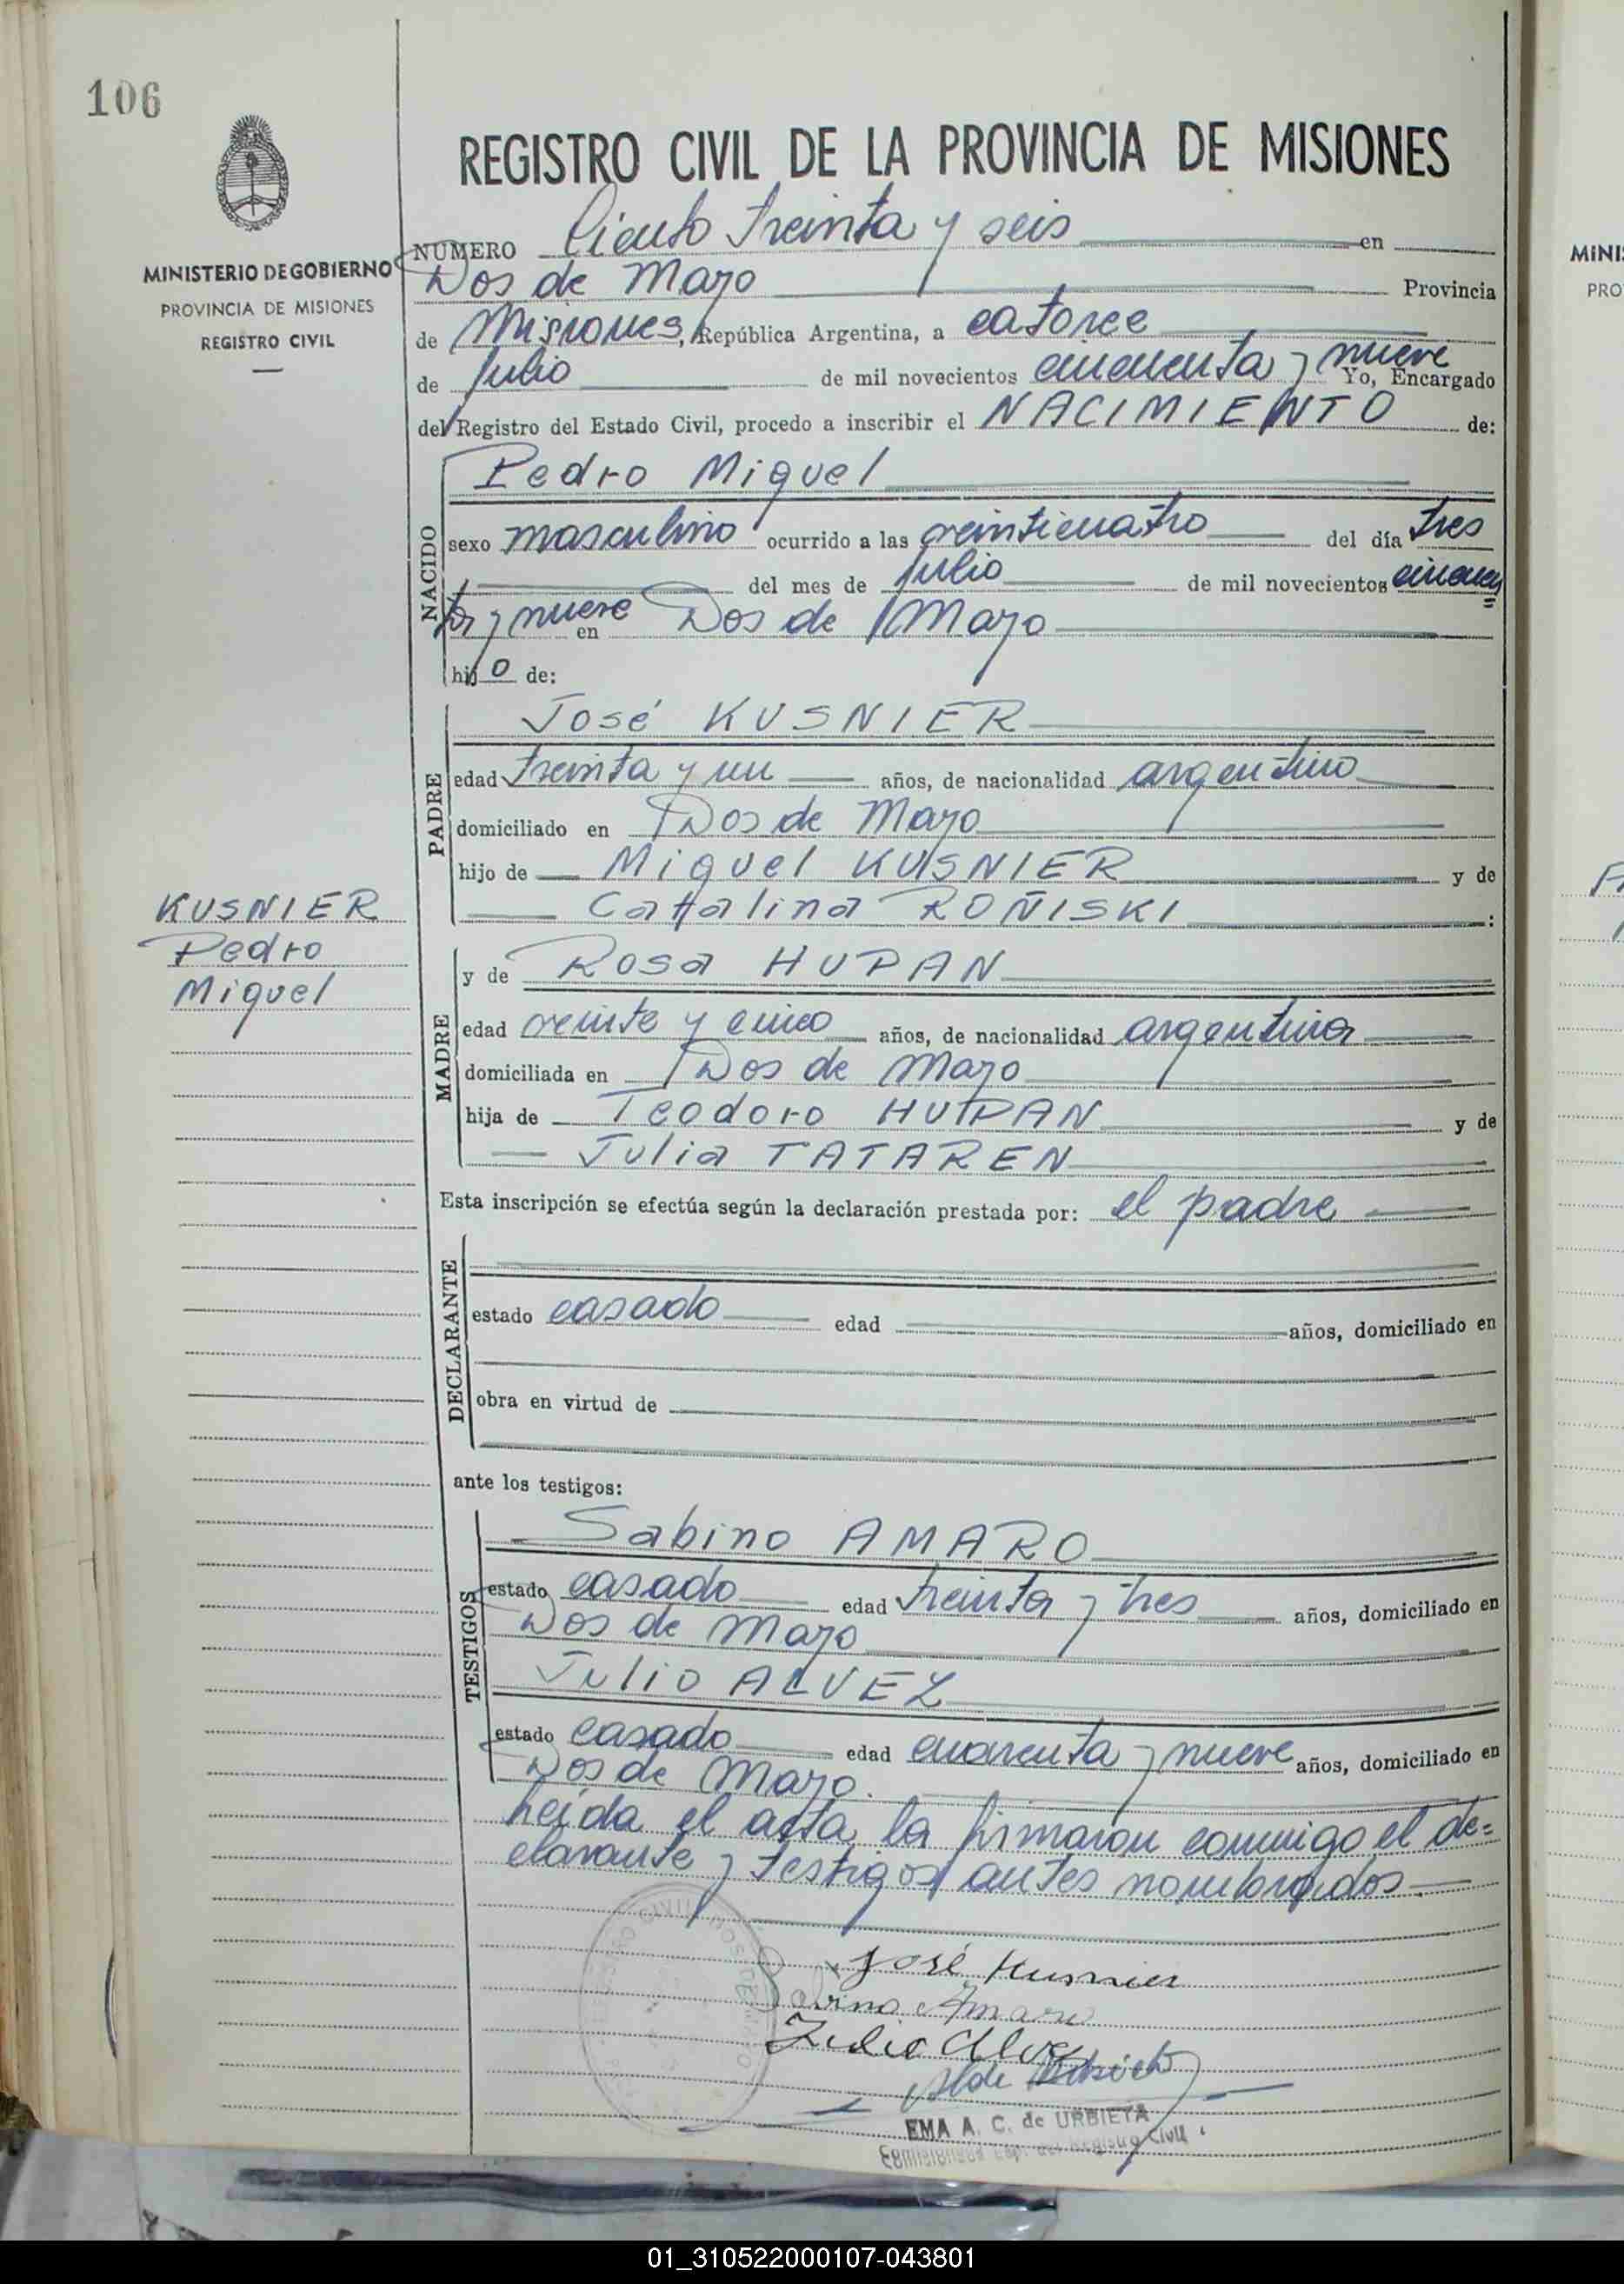 106
REGISTRO CIVIL DE LA PROVINCIA DE MISIONES
MINISTERIO DE GOBIERNO
PROVINCIA DE MISIONES
REGISTRO CIVIL
NÚMERO Ciento treinta y seis en
Dos de Mayo Provincia
de Misiones, República Argentina, a catorce
de Julio de mil novecientos cincuenta y nueve Yo, Encargado
del Registro del Estado Civil, procedo a inscribir el NACIMIENTO de:
NACIDO
Pedro Miguel
sexo masculino ocurrido a las veinticuatro del día tres
del mes de Julio de mil novecientos cincuen
ta y nueve en Dos de Mayo
hijo de:
PADRE
José KUSNIER
edad treinta y un años, de nacionalidad argentino
domiciliado en Dos de Mayo
hijo de Miguel KUSNIER y de
Catalina ROÑISKI :
KUSNIER
Pedro
Miguel
MADRE
y de Rosa HUPAN
edad veinte y cinco años, de nacionalidad argentina
domiciliada en Dos de Mayo
hija de Teodoro HUPAN y de
Julia TATAREN
Esta inscripción se efectúa según la declaración prestada por: el padre
DECLARANTE
estado casado edad años, domiciliado en
obra en virtud de
ante los testigos:
TESTIGOS
Sabino AMARO
estado casado edad treinta y tres años, domiciliado en
Dos de Mayo
Julio ALVEZ
estado casado edad cuarenta y nueve años, domiciliado en
Dos de Mayo.
Leida el acta la firmaron conmigo el de=
clarante y testigos antes nombrados.
José Kusnier
Sabino Amaro
Julio Alvez
EMA A. C. de URBIETA
Registro Civil
MINI
PRO
01_310522000107-043801